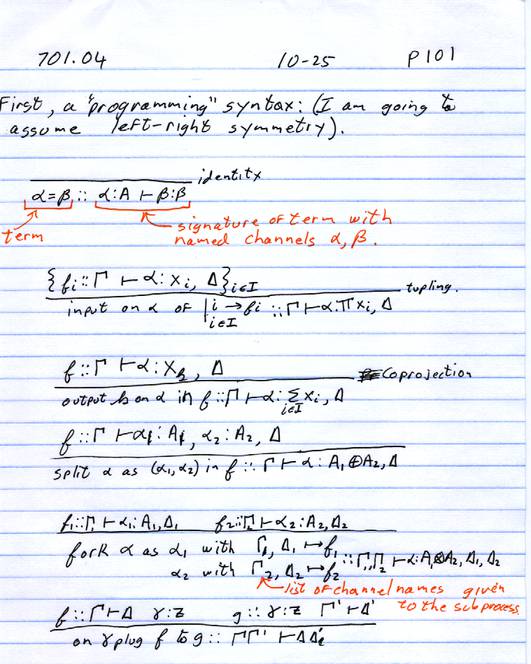 701.04 10-25 P101
First, a "programming" syntax: (I am going to
assume left-right symmetry).
identity
α=β :: α:A ⊢ β:β
term
signature of term with
named channels α, β.
{fi :: Γ ⊢ α: Xi, Δ}i∈I
tupling.
input on α of | i → fi :: Γ ⊢ α: Π Xi, Δ
i∈I
f :: Γ ⊢ α: Xk, Δ
Coprojection
output k on α in f :: Γ ⊢ α: Σ Xi, Δ
i∈I
f :: Γ ⊢ α1: A1, α2: A2, Δ
split α as (α1, α2) in f :: Γ ⊢ α: A1 ⊕ A2, Δ
f1 :: Γ1 ⊢ α1: A1, Δ1 f2 :: Γ2 ⊢ α2: A2, Δ2
fork α as α1 with Γ1, Δ1 ↦ f1
α2 with Γ2, Δ2 ↦ f2 :: Γ1, Γ2 ⊢ α: A1 ⊗ A2, Δ1, Δ2
list of channel names given
to the subprocess
f :: Γ ⊢ Δ γ: Z g :: γ: Z Γ' ⊢ Δ'
on γ plug f to g :: Γ Γ' ⊢ Δ Δ'